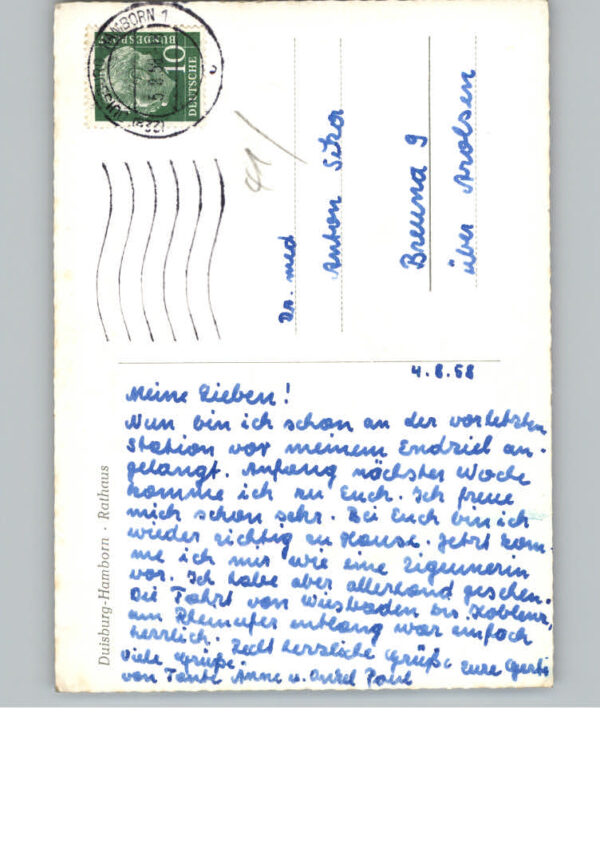 4.8.58
Meine Lieben!
Nun bin ich schon an der vorletzten
Station vor meinem Endziel an-
gelangt. Anfang nächster Woche
komme ich zu Euch. Ich freue
mich schon sehr. Bei Euch bin ich
wieder richtig zu Hause. Jetzt kom-
me ich mir wie eine Zigeunerin
vor. Ich habe aber allerhand gesehen.
Die Fahrt von Wiesbaden bis Koblenz,
am Rheinufer entlang war einfach
herrlich. Recht herzliche Grüße Eure Gerti
Viele Grüße.
von Tante Anne u. Onkel Paul
Dr. med
Anton Sika
Breuna 9
über Arolsen
41/
Duisburg-Hamborn · Rathaus
HAMBORN 1
10
DEUTSCHE
BUNDESPOST